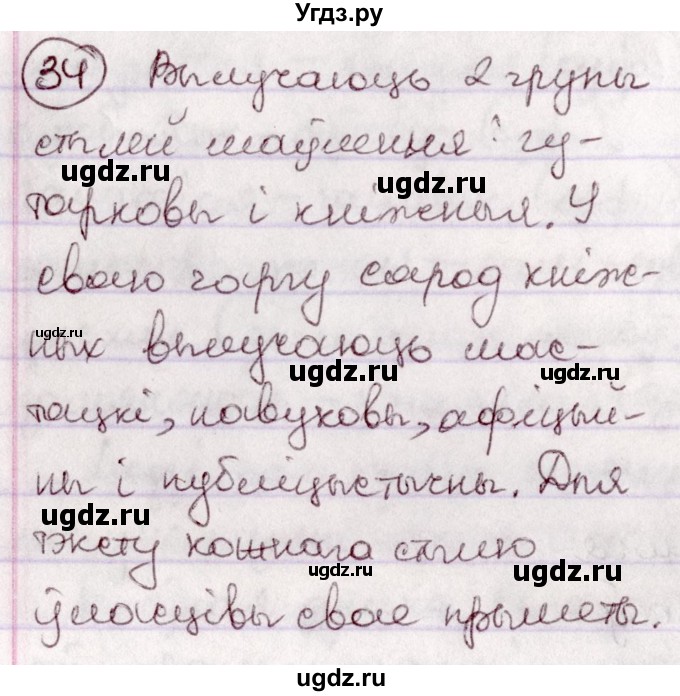 Угдз.ру
34 Вылучаюць 2 групы
стылей маўлення: гу-
тарковы і кніжныя. У
сваю чаргу сярод кніж-
ных вылучаюць мас-
тацкі, навуковы, афіцый-
ны і публіцыстычны. Для
тэксту кожнага стылю
ўласцівы свае прыметы.
ugdz.ru
ugdz.ru
ugdz.ru
ugdz.ru
ugdz.ru
ugdz.ru
ugdz.ru
ugdz.ru
ugdz.ru
ugdz.ru
ugdz.ru